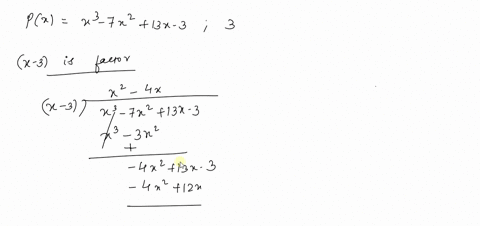 P(x) = x³-7x²+13x-3 ; 3
(x-3) is factor
x² - 4x
(x-3)) x³-7x²+13x-3
x³ - 3x²
+
-4x²+13x-3
-4x²+12x